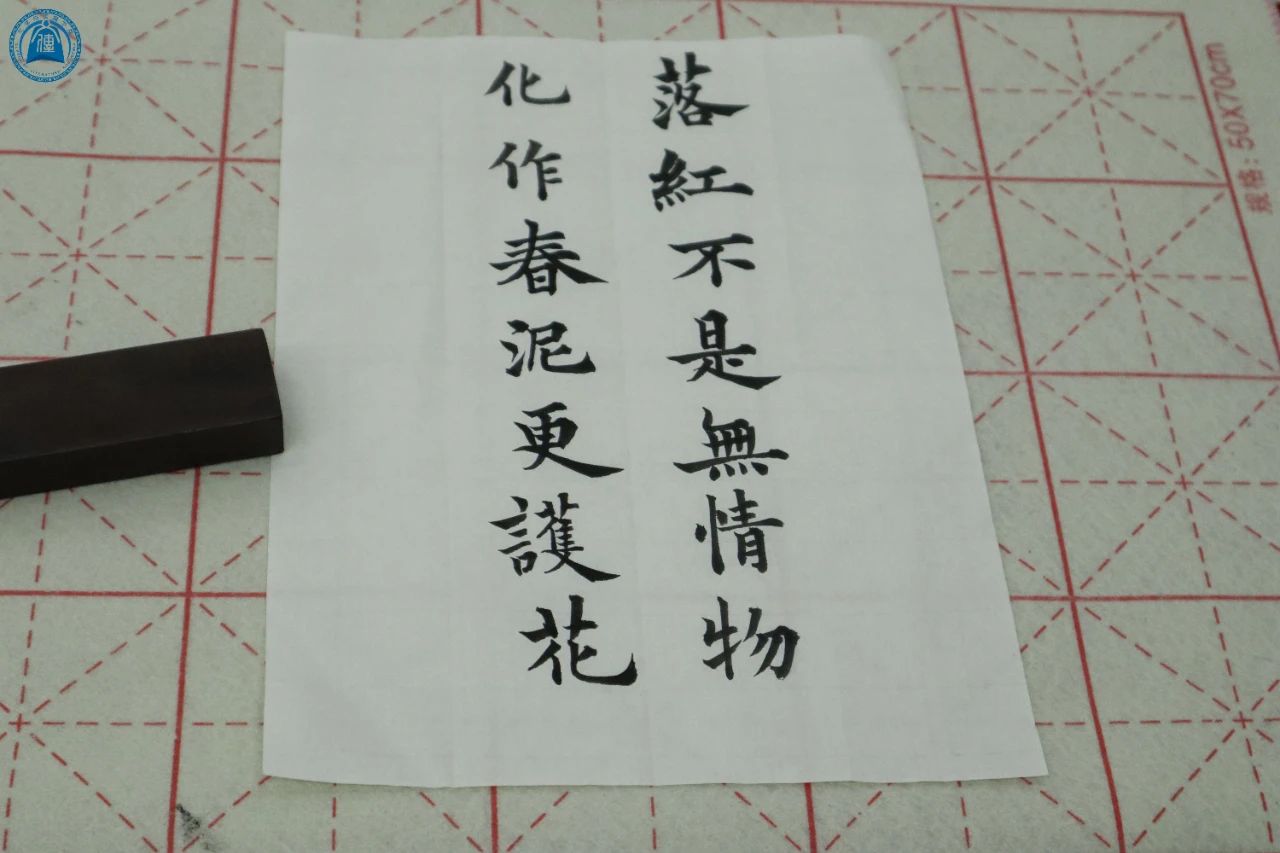 落紅不是無情物
化作春泥更護花
規格:50X70cm